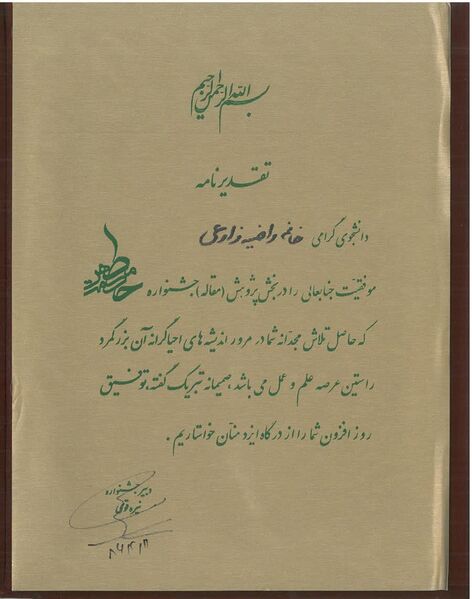 بسم الله الرحمن الرحیم
تقدیرنامه
دانشجوی گرامی خانم راضیه زارعی
موفقیت جنابعالی را در بخش پژوهش (مقاله) جشنواره
که حاصل تلاش مجدّانه شما در مرور اندیشه های احیاگرانه آن بزرگمرد
راستین عرصه علم و عمل می باشد، صمیمانه تبریک گفته، توفیق
روز افزون شما را از درگاه ایزد منّان خواستاریم.
دبیر جشنواره